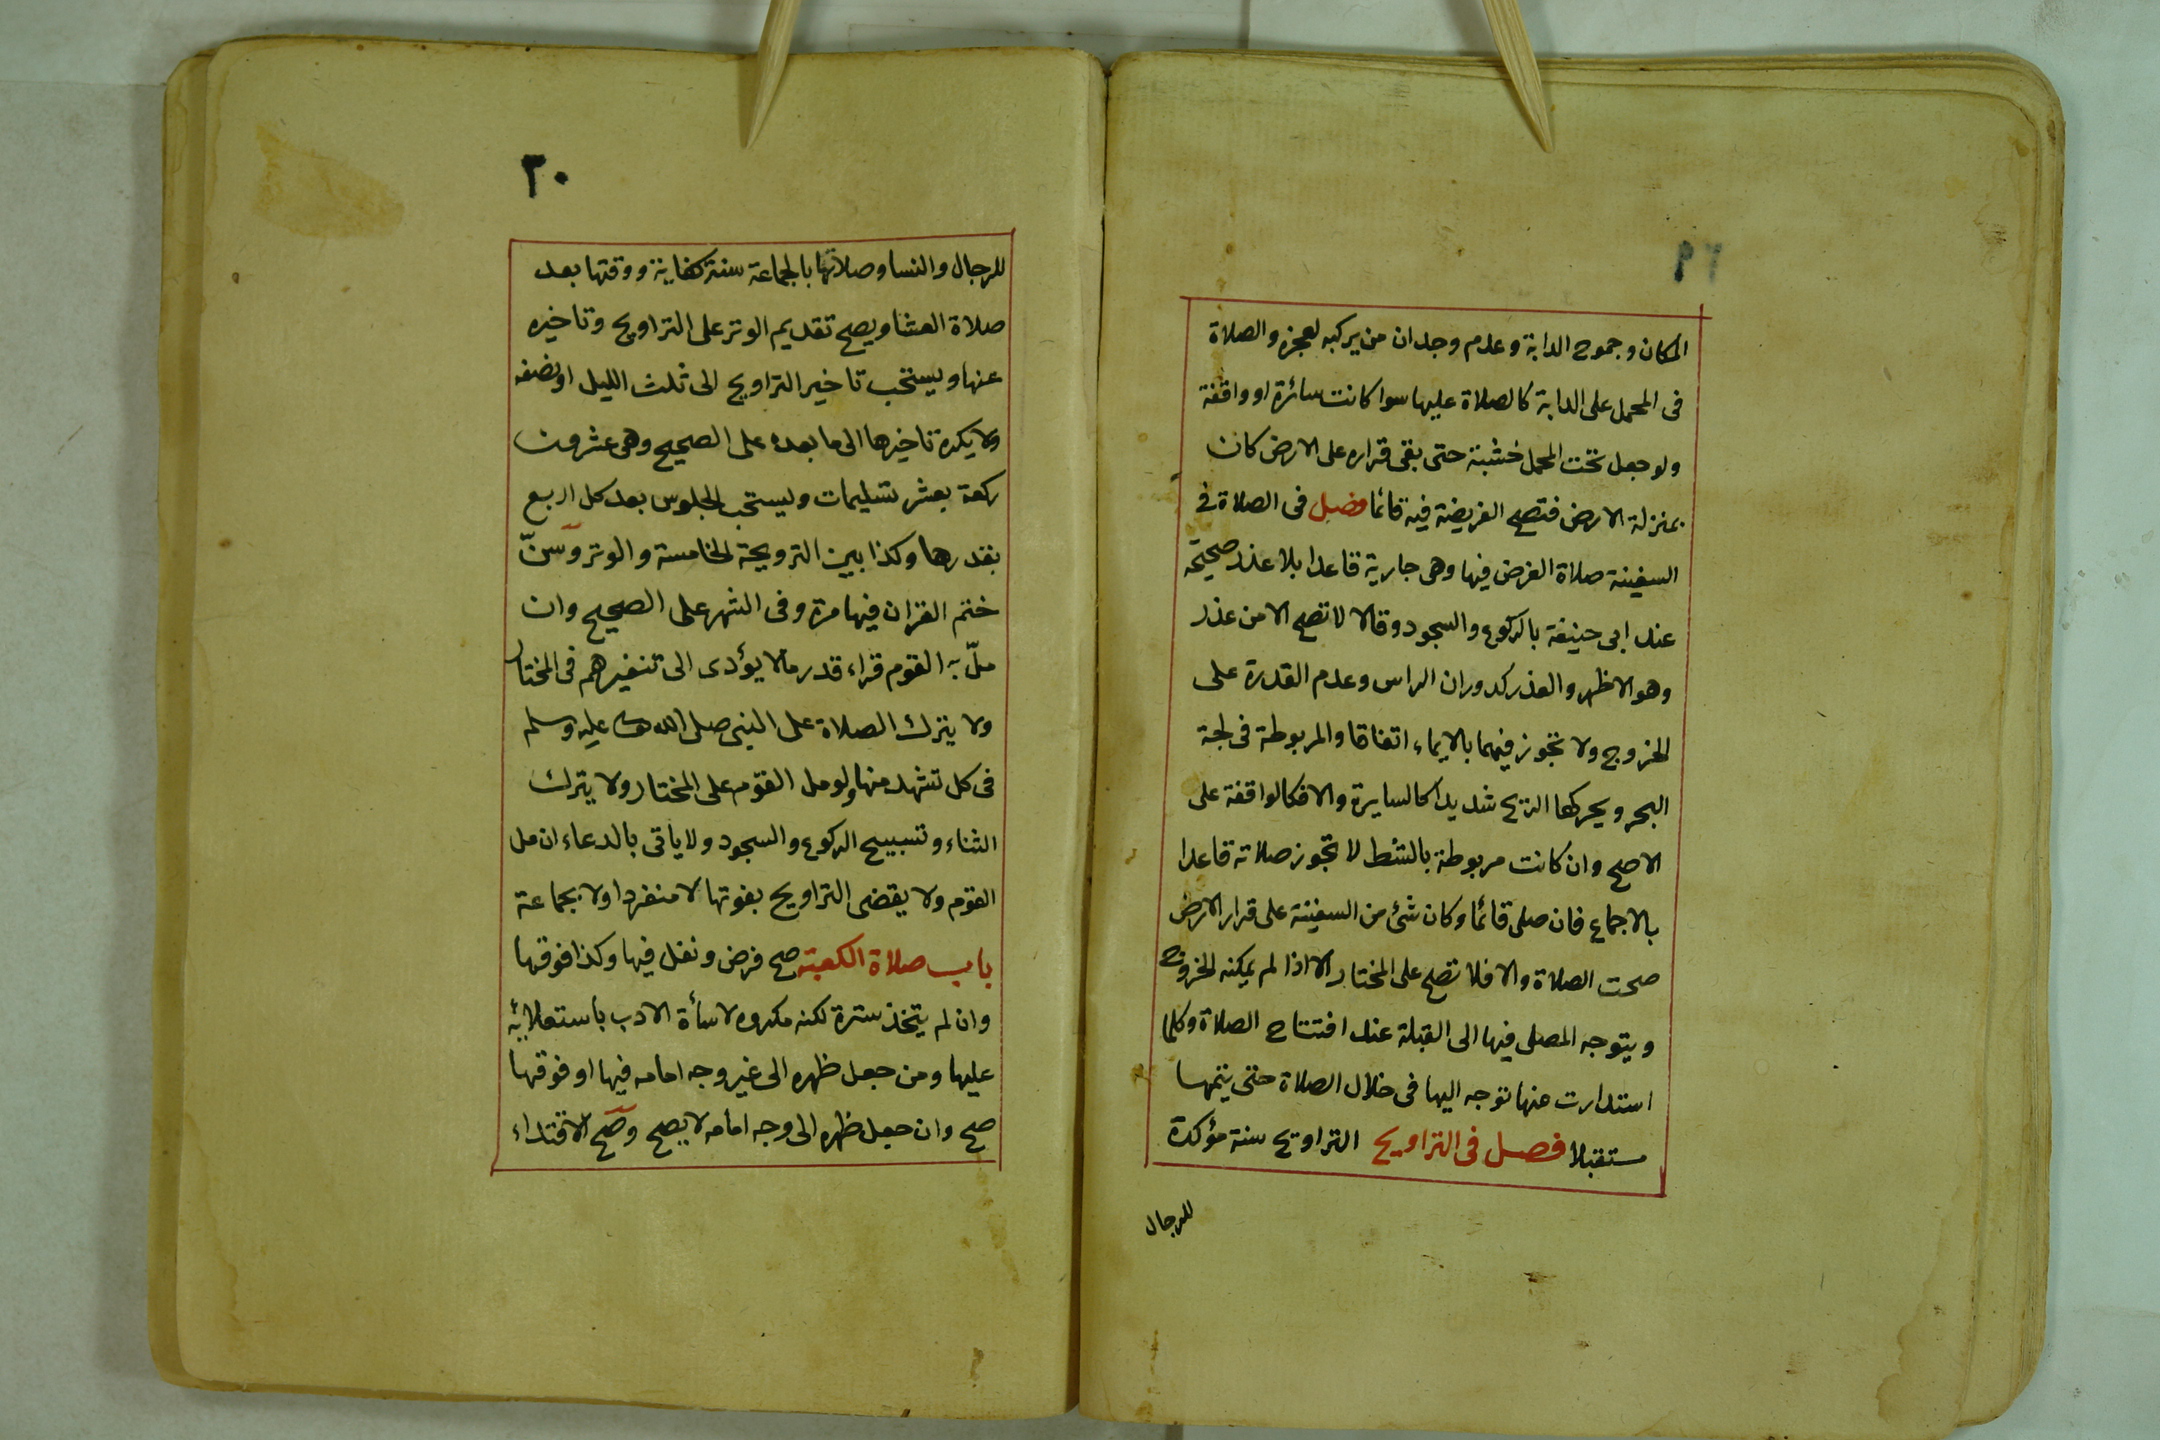 المكان وجموح الدابة وعدم وجدان من يركبه لعجزه والصلاة
فى المحمل على الدابة كالصلاة عليها سوا كانت سائرة او واقفة
ولو جعل تحت المحمل خشبة حتى بقى قراره على الارض كان
بمنزلة الارض فتصح الفريضة فيه قائما فصل فى الصلاة فى
السفينة صلاة الفرض فيها وهى جارية قاعدا بلا عذر صحيحة
عند ابى حنيفة بالركوع والسجود وقالا لا تصح الا من عذر
وهو الاظهر والعذر كدوران الراس وعدم القدرة على
الخروج ولا تجوز فيهما بالايماء اتفاقا والمربوطة فى لجة
البحر ويحركها الريح شديدا كالسايرة والا فكالواقفة على
الاصح وان كانت مربوطة بالشط لا تجوز صلاته قاعدا
بالاجماع فان صلى قائما وكان شئ من السفينة على قرار الارض
صحت الصلاة والا فلا تصح على المختار الا اذا لم يمكنه الخروج
ويتوجه المصلى فيها الى القبلة عند افتتاح الصلاة وكلما
استدارت عنها توجه اليها فى خلال الصلاة حتى يتمها
مستقبلا فصل فى التراويح التراويح سنة مؤكدة
للرجال
٣٠
للرجال والنسا وصلاتها بالجماعة سنة كفاية ووقتها بعد
صلاة العشا ويصح تقديم الوتر على التراويح وتاخيره
عنها ويستحب تاخير التراويح الى ثلث الليل او نصفه
ولا يكره تاخيرها الى ما بعده على الصحيح وهى عشرون
ركعة بعشر تسليمات ويستحب الجلوس بعد كل اربع
بقدرها وكذا بين الترويحة الخامسة والوتر وسنّ
ختم القران فيها مرة وفى الشهر على الصحيح وان
ملّ به القوم قراء قدر ما لا يؤدى الى تنفيرهم فى المختار
ولا يترك الصلاة على النبى صلى الله عليه وسلم
فى كل تشهد منها ولو مل القوم على المختار ولا يترك
الثناء وتسبيح الركوع والسجود ولا ياتى بالدعاء ان مل
القوم ولا يقضى التراويح بفوتها لا منفردا ولا بجماعة
باب صلاة الكعبة صح فرض ونفل فيها وكذا فوقها
وان لم يتخذ سترة لكنه مكروه لاسأة الادب باستعلائه
عليها ومن جعل ظهره الى غير وجه امامه فيها او فوقها
صح وان جعل ظهره الى وجه امامه لا يصح وصح الاقتداء